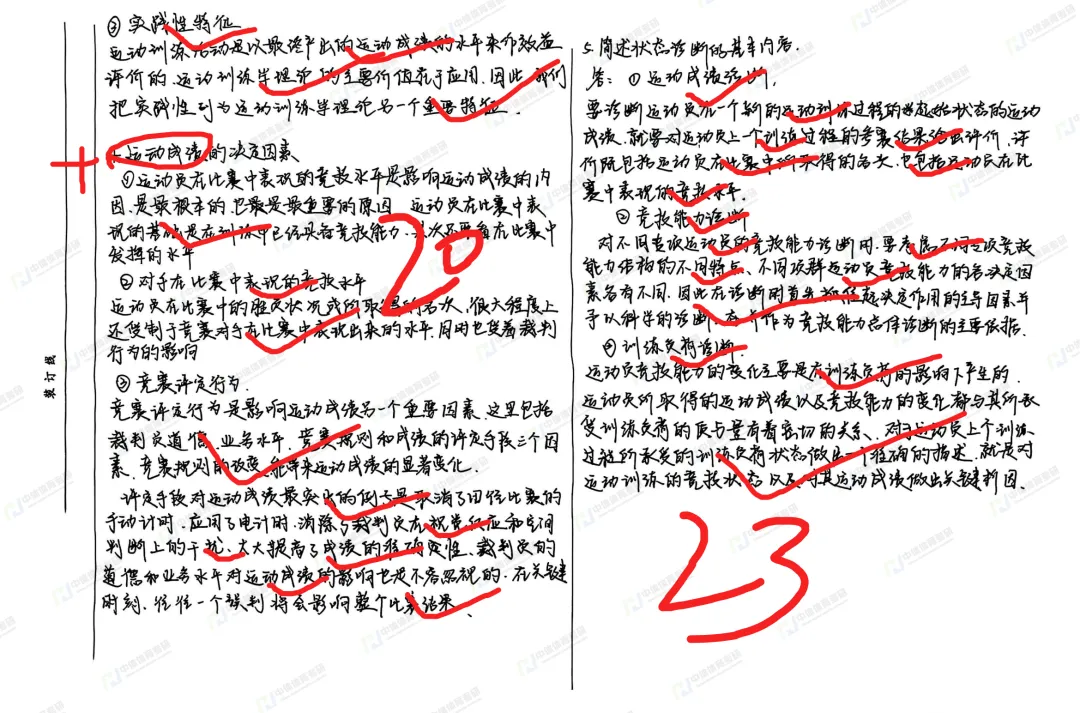 ③ 实践性特征
运动训练活动是以最终产出的运动成绩的水平来作效益
评价的.运动训练学理论的主要价值在于应用.因此,我们
把实践性列为运动训练学理论另一个重要特征.
运动成绩的决定因素
①运动员在比赛中表现的竞技水平是影响运动成绩的内
因.是最根本的也最是最重要的原因 运动员在比赛中表
现的基础是在训练中已经具备竞技能力.其次还要看在比赛中
发挥的水平
② 对手在比赛中表现的竞技水平
运动员在比赛中的胜负状况或所取得的名次.很大程度上
还受制于竞赛对手在比赛中表现出来的水平.同时也受着裁判
行为的影响
③ 竞赛评定行为.
竞赛评定行为是影响运动成绩另一个重要因素、这里包括
裁判员道德、业务水平.竞赛规则和成绩的评定手段三个因
素、竞赛规则的改变.能带来运动成绩的显著变化.
评定手段对运动成绩最突出的例子是取消了田径比赛的
手动计时.应用了电计时.消除了裁判员在视觉反应和空间
判断上的干扰、大大提高了成绩的准确定性、裁判员的
道德和业务水平对运动成绩的影响也是不容忽视的.在关键
时刻.往往一个误判将会影响整个比赛结果、
20
5.简述状态诊断的基本内容.
答: ①运动成绩诊断.
要诊断运动员在一个新的运动训练过程的起始状态的运动
成绩.就要对运动员上一个训练过程的参赛结果给出评价.评
价既包括运动员在比赛中所取得的名次.也包括运动员在比
赛中表现的竞技水平.
② 竞技能力诊断
对不同专项运动员的竞技能力诊断时.要考虑不同专项竞技
能力结构的不同特点、不同项群运动员竞技能力的各决定因
素各有不同.因此在诊断时首先抓住起决定作用的主导因素.并
予以科学的诊断、作为竞技能力总体诊断的主要依据.
训练负荷诊断.
运动员竞技能力的变化主要是在训练负荷的影响下产生的.
运动员所取得的运动成绩以及竞技能力的变化都与其所承
受训练负荷的度与量有着密切的关系、对于运动员上个训练
过程所承受的训练负荷状态做出一个准确的描述.就是对
运动训练的竞技状态以及对其运动成绩做出关键判因.
23
装订线
中体体育考研